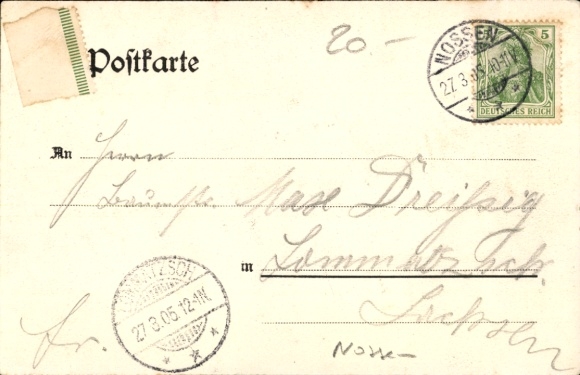 20 -
Postkarte
NOSSEN
27.3.05.10-11V.
5
DEUTSCHES REICH
An Herrn
Max Dreißig
in Lommatzsch
Sachsen
27.3.05.12-1N.
Fr.
Nossen